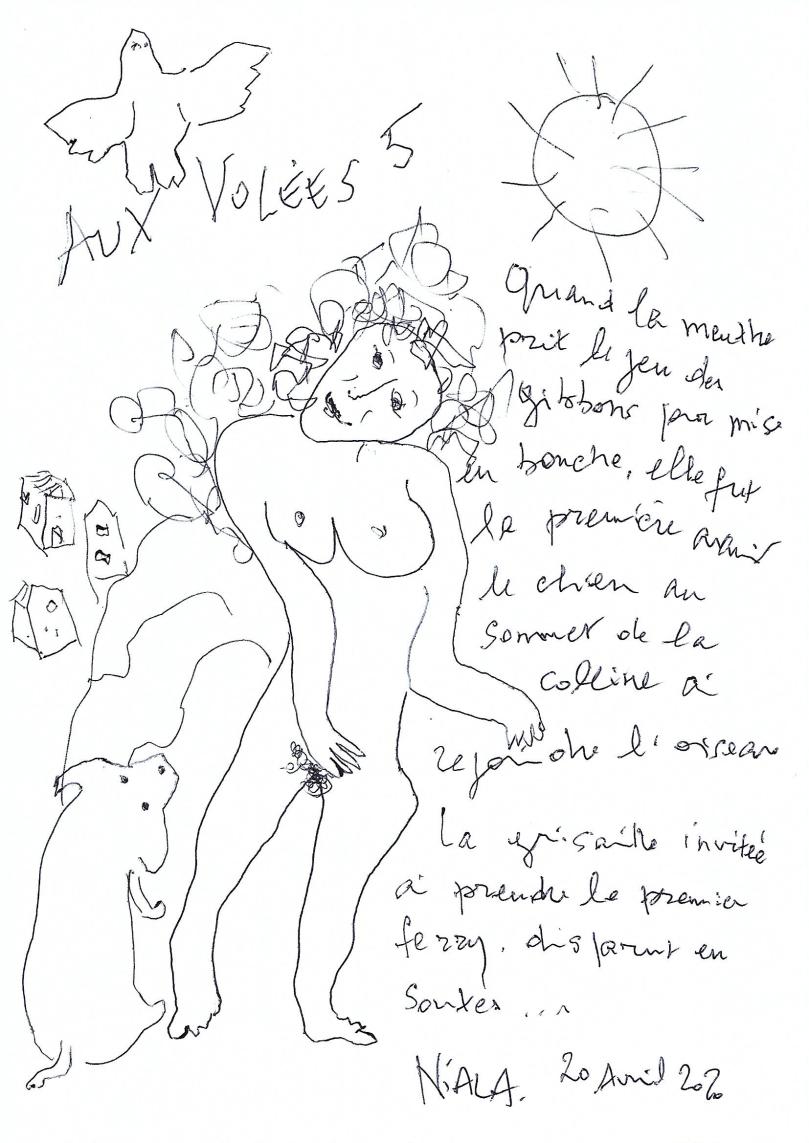 AUX VOLÉES 5
Quand la menthe
prit le jeu des
gibbons pour mise
en bouche, elle fut
la première avant
le chien au
sommet de la
colline à
rejoindre l'oiseau
La grisaille invitée
à prendre le premier
ferry, disparut en
soutes ...
NIALA. 20 Avril 2020